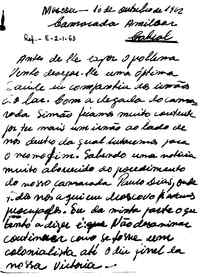 Moscou — 10 de outubro de 1962
Camarada Amílcar
Cabral
Ref.- E-2-1-63
Antes de lhe expor o poblema
tenho desejo-lhe uma óptima
saúde em companhia dos irmãos
do lar. Com a chegada do cama-
rada Simão ficamos muito contente
por ter mais um irmão ao lado de
nos dentro da qual lutaremos para
o mesmo fim. Sabendo uma notícia
muito aborrecida do procedimento
do nosso camarada Paulo Dias, onde
nos aqui em Moscovo ficamos
preocupados. Eu da minha parte o que
tanto a dizer é que Não desanimar
continuar como se fosse um
colonialista, até o dia final da
nossa Vitoria.